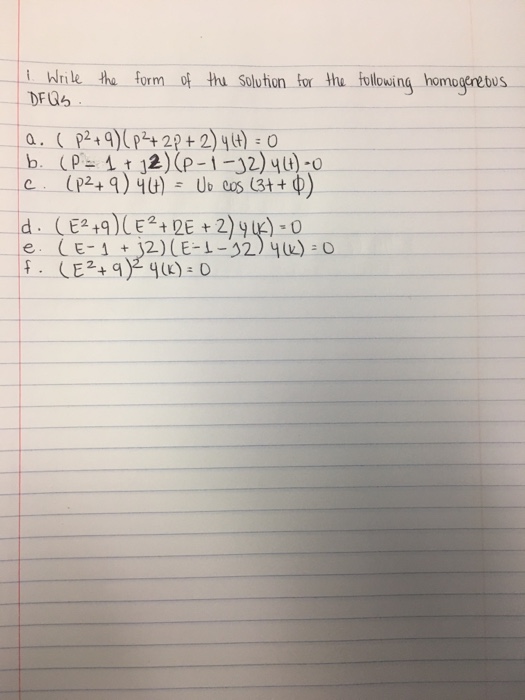 1. Write the form of the solution for the following homogenetous
DFQs.
a. ( p²+9)(p²+2p+2) y(t) = 0
b. (p - 1 + j2)(p-1-j2) y(t)=0
c. (p²+9) y(t) = U₀ cos (3t+ϕ)
d. (E²+9)(E²+2E+2) y(k)=0
e. (E-1 + j2)(E-1-j2) y(k)=0
f. (E²+9)² y(k)=0